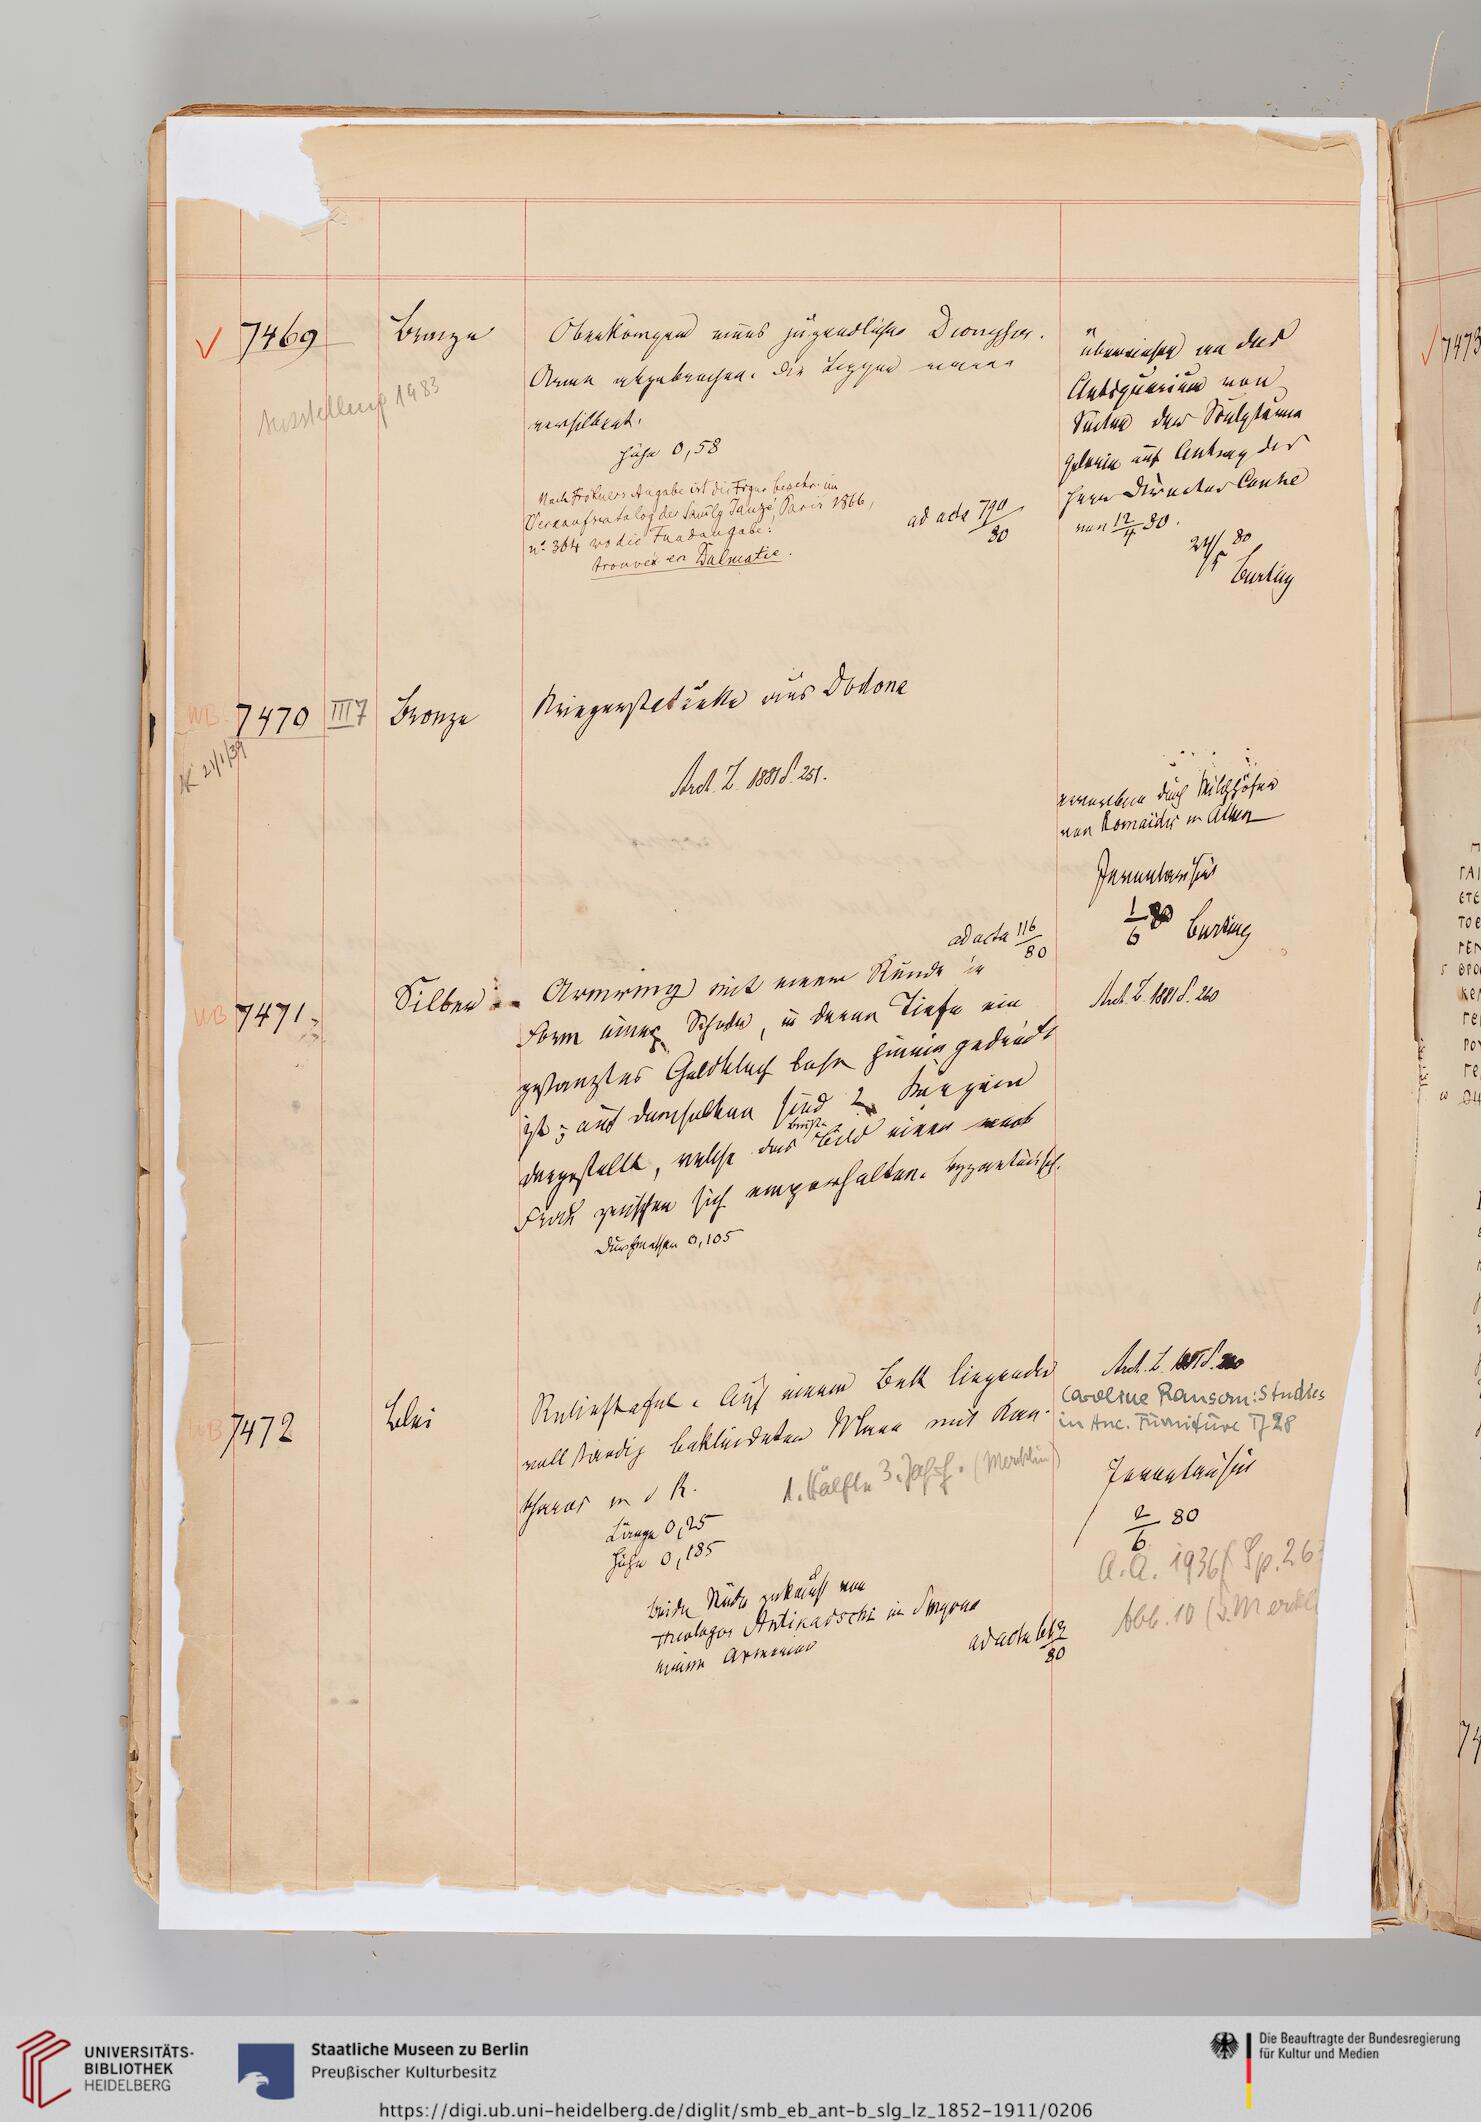 7469 Bronze Oberkörper eines jugendlichen Dionysos.
Arme abgebrochen. Die Lippen waren
versilbert.
Höhe 0,58
Ausstellung 1983
Nach Fröhners Angabe ist die Figur beschr. im
Verkaufscatalog der Samlg Janzé, Paris 1866,
nº 364 wo die Fundangabe:
trouvée en Dalmatie.
ad acta 790/80
überwiesen an das
Antiquarium von
Seiten der Sculpturen
Galerie auf Antrag des
Herrn Director Conze
von 12/4 80.
24/5 80
Curtius
WB. 7470 III 7 Bronze Kriegerstatuette aus Dodona
21/1/39
Arch. Z. 1881 S. 251.
erworben durch Milchhöfer
von Romaïdes in Athen
Inventarisirt
1/6 80 Curtius
ad acta 116/80
WB 7471. Silber Armring mit einem Runde in
Form einer Schale, in deren Tiefe ein
gestanztes Goldblech hinein gedrückt
ist; auf demselben sind 2
dargestellt, welche das Bild einer
Frau zwischen sich emporhalten. byzantinisch.
Durchmesser 0,105
Arch. Z. 1881 S. 260
WB 7472 Blei Relieftafel. Auf einem Bett liegender
vollständig bekleideter Mann mit Kan-
tharos in d R.
Länge 0,25
Höhe 0,185
1. Hälfte 3. Jahrh. (Mercklin)
beide Stücke gekauft von
Theologos Antikadschi in Smyrna
einem Armenier
ad acta
80
Arch. Z.
Caroline Ransom: Studies
in Anc. Furniture T 28
Inventarisirt
2/6 80
A. A. 1936 Sp. 26
Abb. 10 (v. Merckl
7473
UNIVERSITÄTS-
BIBLIOTHEK
HEIDELBERG
Staatliche Museen zu Berlin
Preußischer Kulturbesitz
Die Beauftragte der Bundesregierung
für Kultur und Medien
https://digi.ub.uni-heidelberg.de/diglit/smb_eb_ant-b_slg_lz_1852-1911/0206